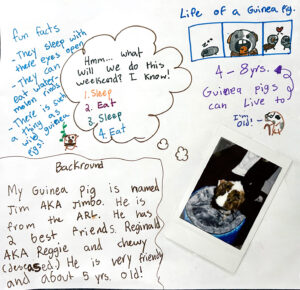 fun facts
- They sleep with
there eyes open
- They can
eat water
melon rinds
- There is such
a thing as
wild guinea
pigs!
Hmm... what
will we do this
weekend? I know!
1. Sleep
2. Eat
3. Sleep
4. Eat
Life of a Guinea Pig.
4-8 yrs.
Guinea pigs
can live to
I'm
old!-
Backround
My Guinea pig is named
Jim AKA Jimbo. He is
from the ARL. He has
2 best friends. Reginald
AKA Reggie and chewy
(deceased) He is very friendly
and about 5 yrs. old!